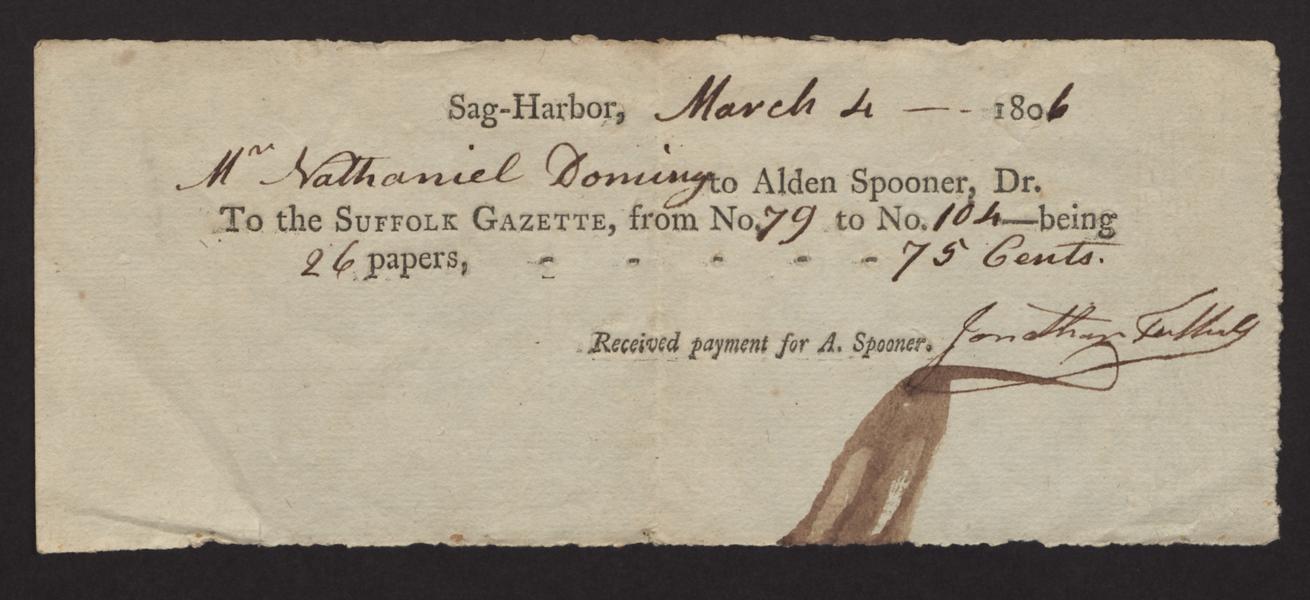 Sag-Harbor, March 4 — - 1806
Mr Nathaniel Doming to Alden Spooner, Dr.
To the SUFFOLK GAZETTE, from No. 79 to No. 104—being
26 papers, - - - - - 75 Cents.
Received payment for A. Spooner. Jonathan